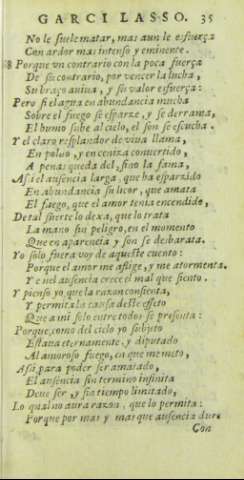 GARCI LASSO. 35
No le suele matar, mas aun le esfuerça
Con ardor mas intenso y eminente.
38 Porque vn contrario con la poca fuerça
De su contrario, por vencer la lucha,
Su braço auiua, y su valor esfuerça:
Pero si el agua en abundancia mucha
Sobre el fuego se esparze, y se derrama,
El humo sube al cielo, el son se escucha.
Y el claro resplandor de viua llama,
En poluo, y en ceniza conuertido,
A penas queda del, sino la fama,
Assi el ausencia larga, que ha esparzido
En abundancia su licor, que amata
El fuego, que el amor tenia encendido,
De tal suerte lo dexa, que lo trata
La mano sin peligro, en el momento
Que en aparencia y son se desbarata.
Yo solo fuera voy de aqueste cuento:
Porque el amor me aflige, y me atormenta.
Y e nel ausencia crece el mal que siento.
Y pienso yo, que la razon consienta,
Y permita la causa deste effeto
Que a mi solo entre todos se presenta:
Porque, como del cielo yo subjeto
Estaua eternamente, y diputado
Al amoroso fuego, en que me meto,
Assi, para poder ser amatado,
El ausencia sin termino infinita
Deue ser, y sin tiempo limitado,
Lo qual no aura razon, que lo permita:
Porque por mas y mas que ausencia dure
Con